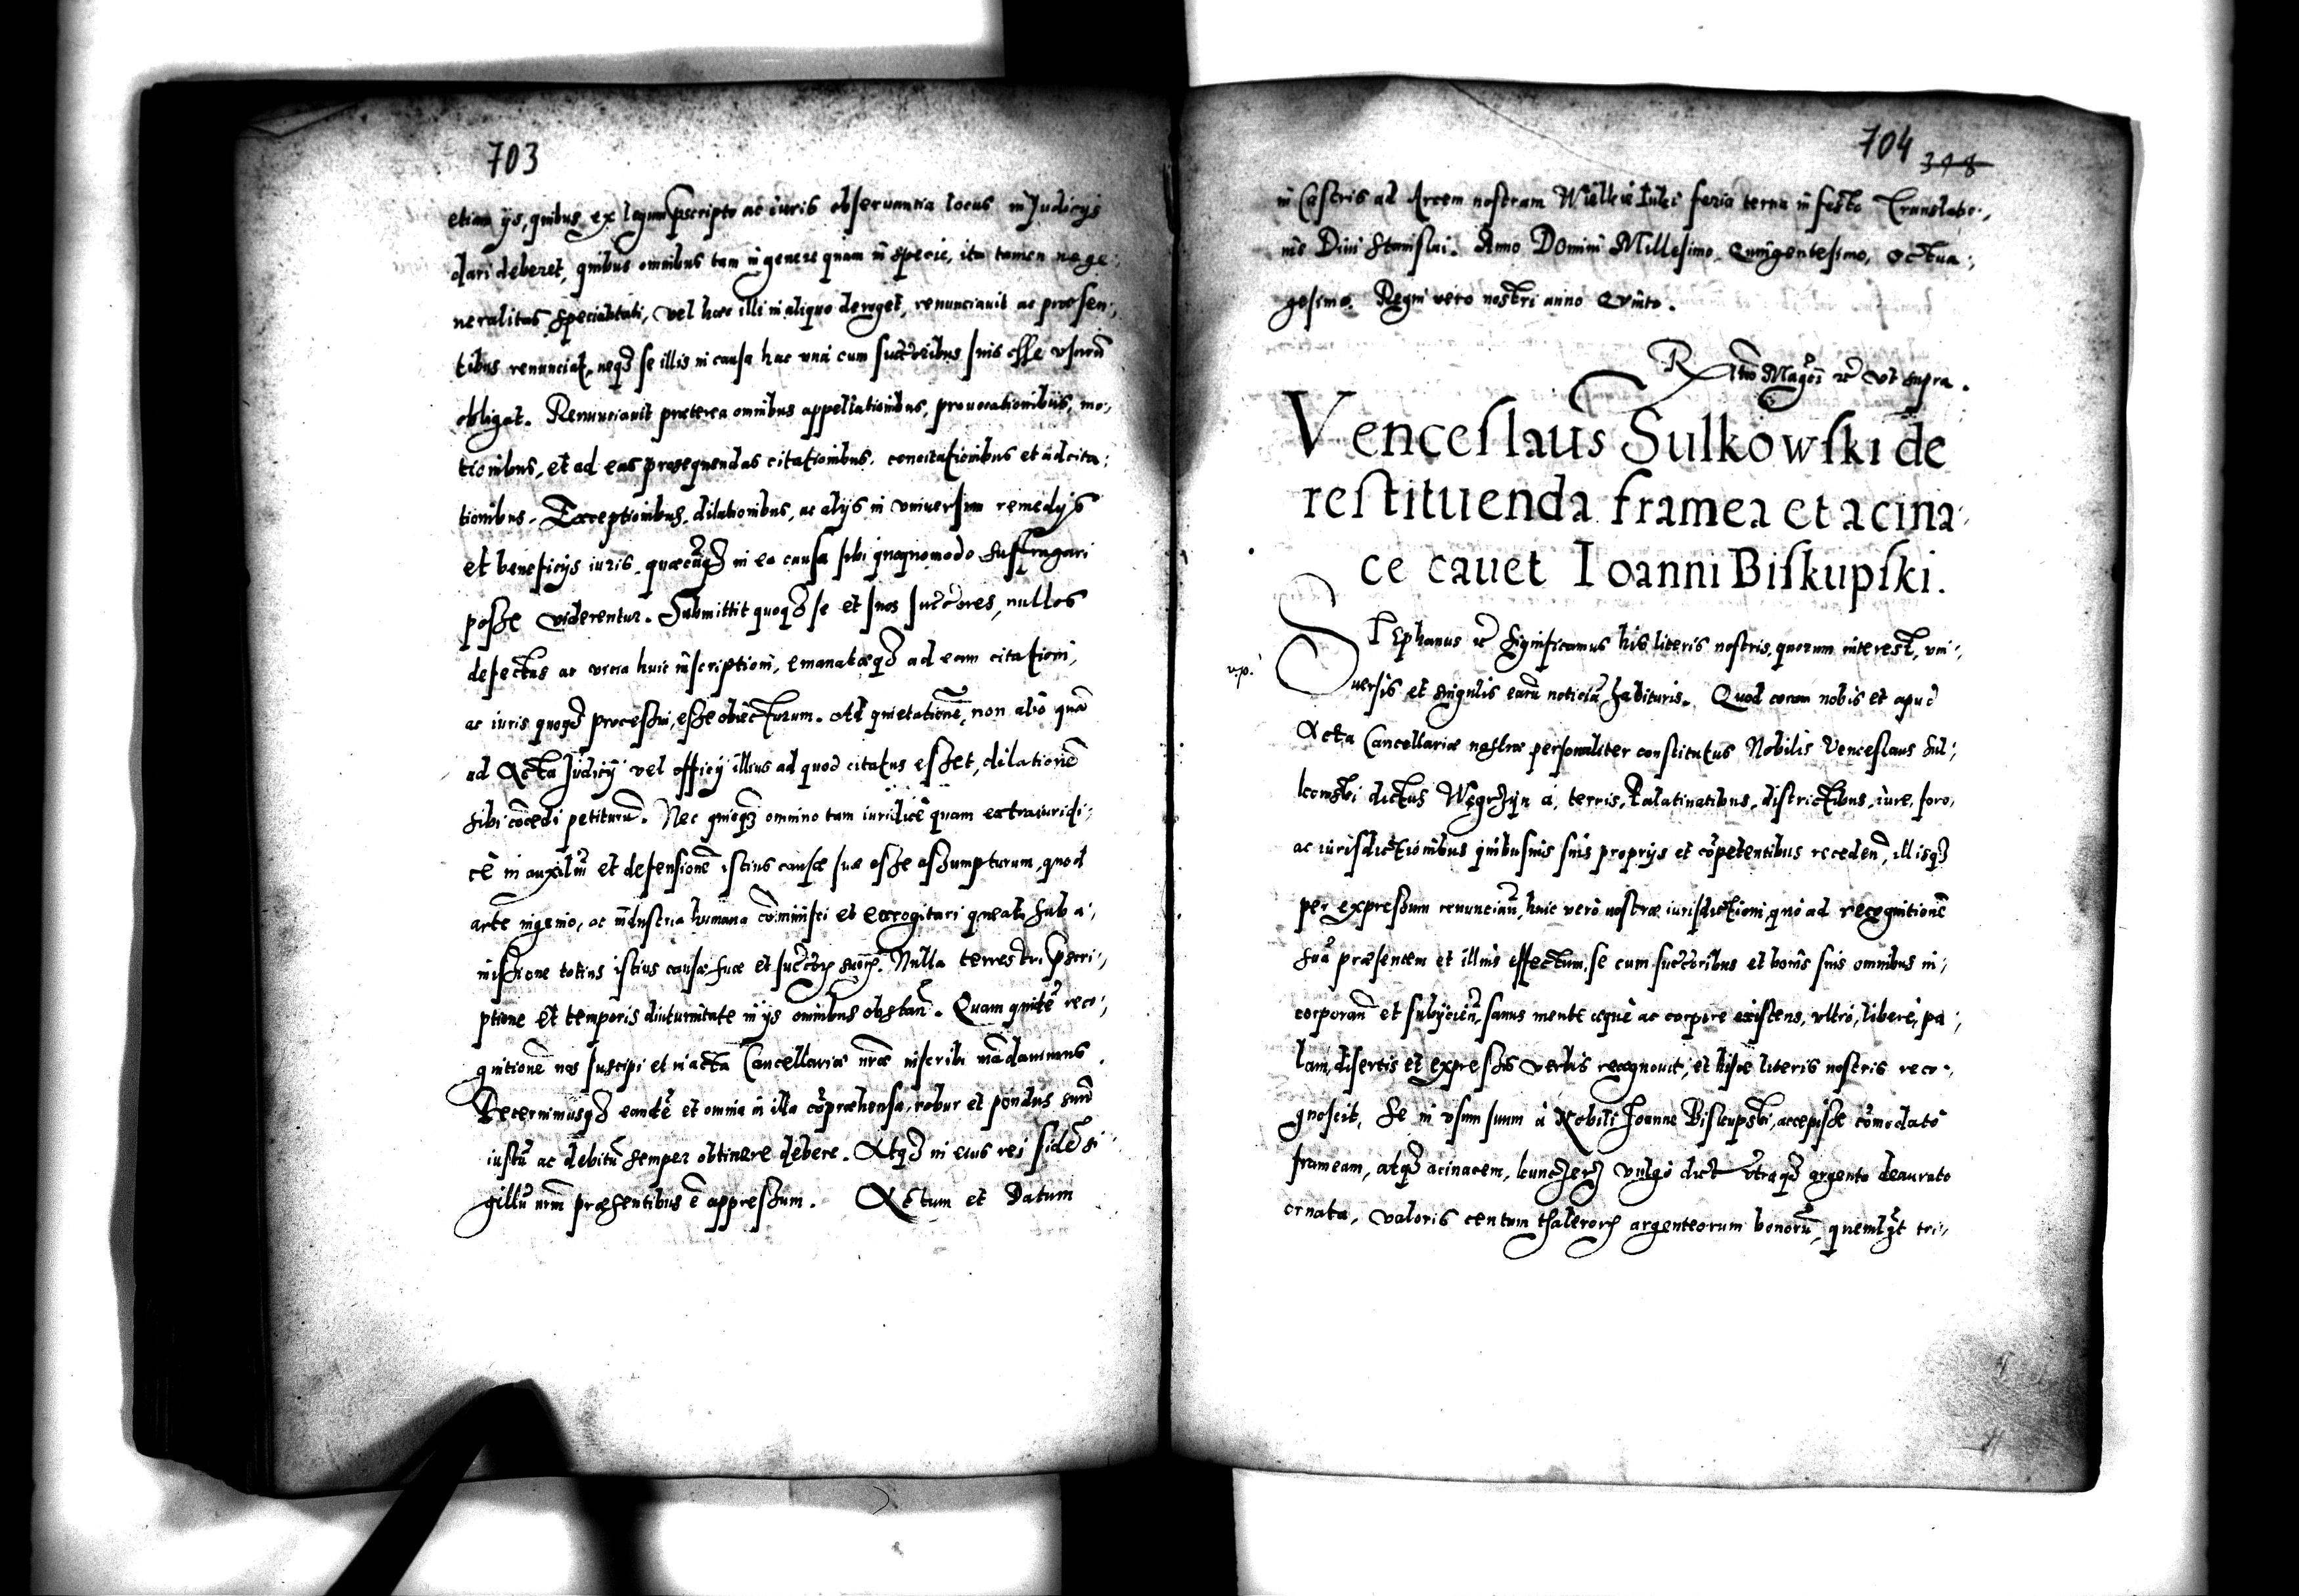 703
etiam ijs, quibus, ex legum pscripto ac iuris obseruantia locus in Judicijs
dari deberet, quibus omnibus tam in genere quàm in specie, ita tamen ne ge,,
neralitas specialitati, vel haec illi in aliquo deroget, renunciauit ac praesen,,
tibus renunciat, neq3 se illis in causa hac vnà cum succ̃oribus suis esse vsurũ
obligat. Renunciauit praeterea omnibus appellationibus, prouocationibus, mo,,
tionibus, et ad eas prosequendas citationibus, concitationibus et ad cita,,
tionibus, Exceptionibus, dilationibus, ac alijs in vniuersum remedijs
et beneficijs iuris, quaecũq3 in ea causa sibi quoquomodo suffragari
posse viderentur. Submittit quoq3 se et suos succ̃ores, nullos
defectus ac vicia huic inscriptioni, emanataeq3 ad eam citationi,
ac iuris quoq3 processui, esse obiecturum. Ad quietationẽ, non aliò quã
ad Acta Judicij vel officij illius ad quod citatus esset, dilationẽ
sibi cõcedi petiturũ. Nec quicq3 omnino tam iuridicè quam extraiuridi,,
cè in auxiliũ et defensionẽ istius causae suae esse assumpturum, quod
arte ingenio, ac industria humana cõminisci et excogitari queat, sub a,,
missione totius istius causae suae et succ̃orꝝ suorꝝ. Nulla terrestri pscri,,
ptione et temporis diuturnitate in ijs omnibus obstañ. Quam quidẽ reco,,
gnitionẽ nos suscipi et in acta Cancellariae nrae inscribi mãdauimus.
Decernimusq3 eandẽ et omnia in illa cõpraehensa, robur et pondus suũ
iustũ ac debitũ semper obtinere debere. Atq3 in eius rei fidẽ si,,
gillũ nrm praesentibus ẽ appressum. Actum et Datum
704 348
in Castris ad Arcem nostram Wielkie Luki feria terna in festo Translatio,,
nis Diui Stanislai. Anno Domini Millesimo, Quingentesimo, octua,,
gesimo. Regni vero nostri anno Quinto.
Rltio Magci etc vt supra.
Venceslaus Sulkowski de
restituenda framea et acina,,
ce cauet Ioanni Biskupski.
STephanus etc Significamus his literis nostris, quorum interest, vni,,
v.p. uersis et singulis earũ noticiã habituris. Quod coram nobis et apud
Acta Cancellariae nostrae personaliter constitutus Nobilis Venceslaus Sul,,
kowski dictus Węgrzÿn à, terris, Palatinatibus, districtibus, iure, foro,
ac iurisdictionibus quibusuis suis proprijs et cõpetentibus recedeñ, illisq3
per expressum renunciañ, huic verò nostrae iurisdictioni, quò ad recognitionẽ
suã praesentem et illius effectum, se cum succ̃oribus et bonis suis omnibus in,,
corporañ et subijcieñ, sanus mente aequè ac corpore existens, vltrò, liberè, pa,,
lam, disertis et expressis verbis recognouit, et hisce literis nostris reco,,
gnoscit, Se in vsum suum à Nobili Joanne Biskupski, accepisse cõmodatò
frameam, atq3 acinacem, kunczerz vulgò dict vtraq3 argento deaurato
ornata, valoris centum thalerorꝝ argenteorum bonorũ, quemlꝫt tri,,